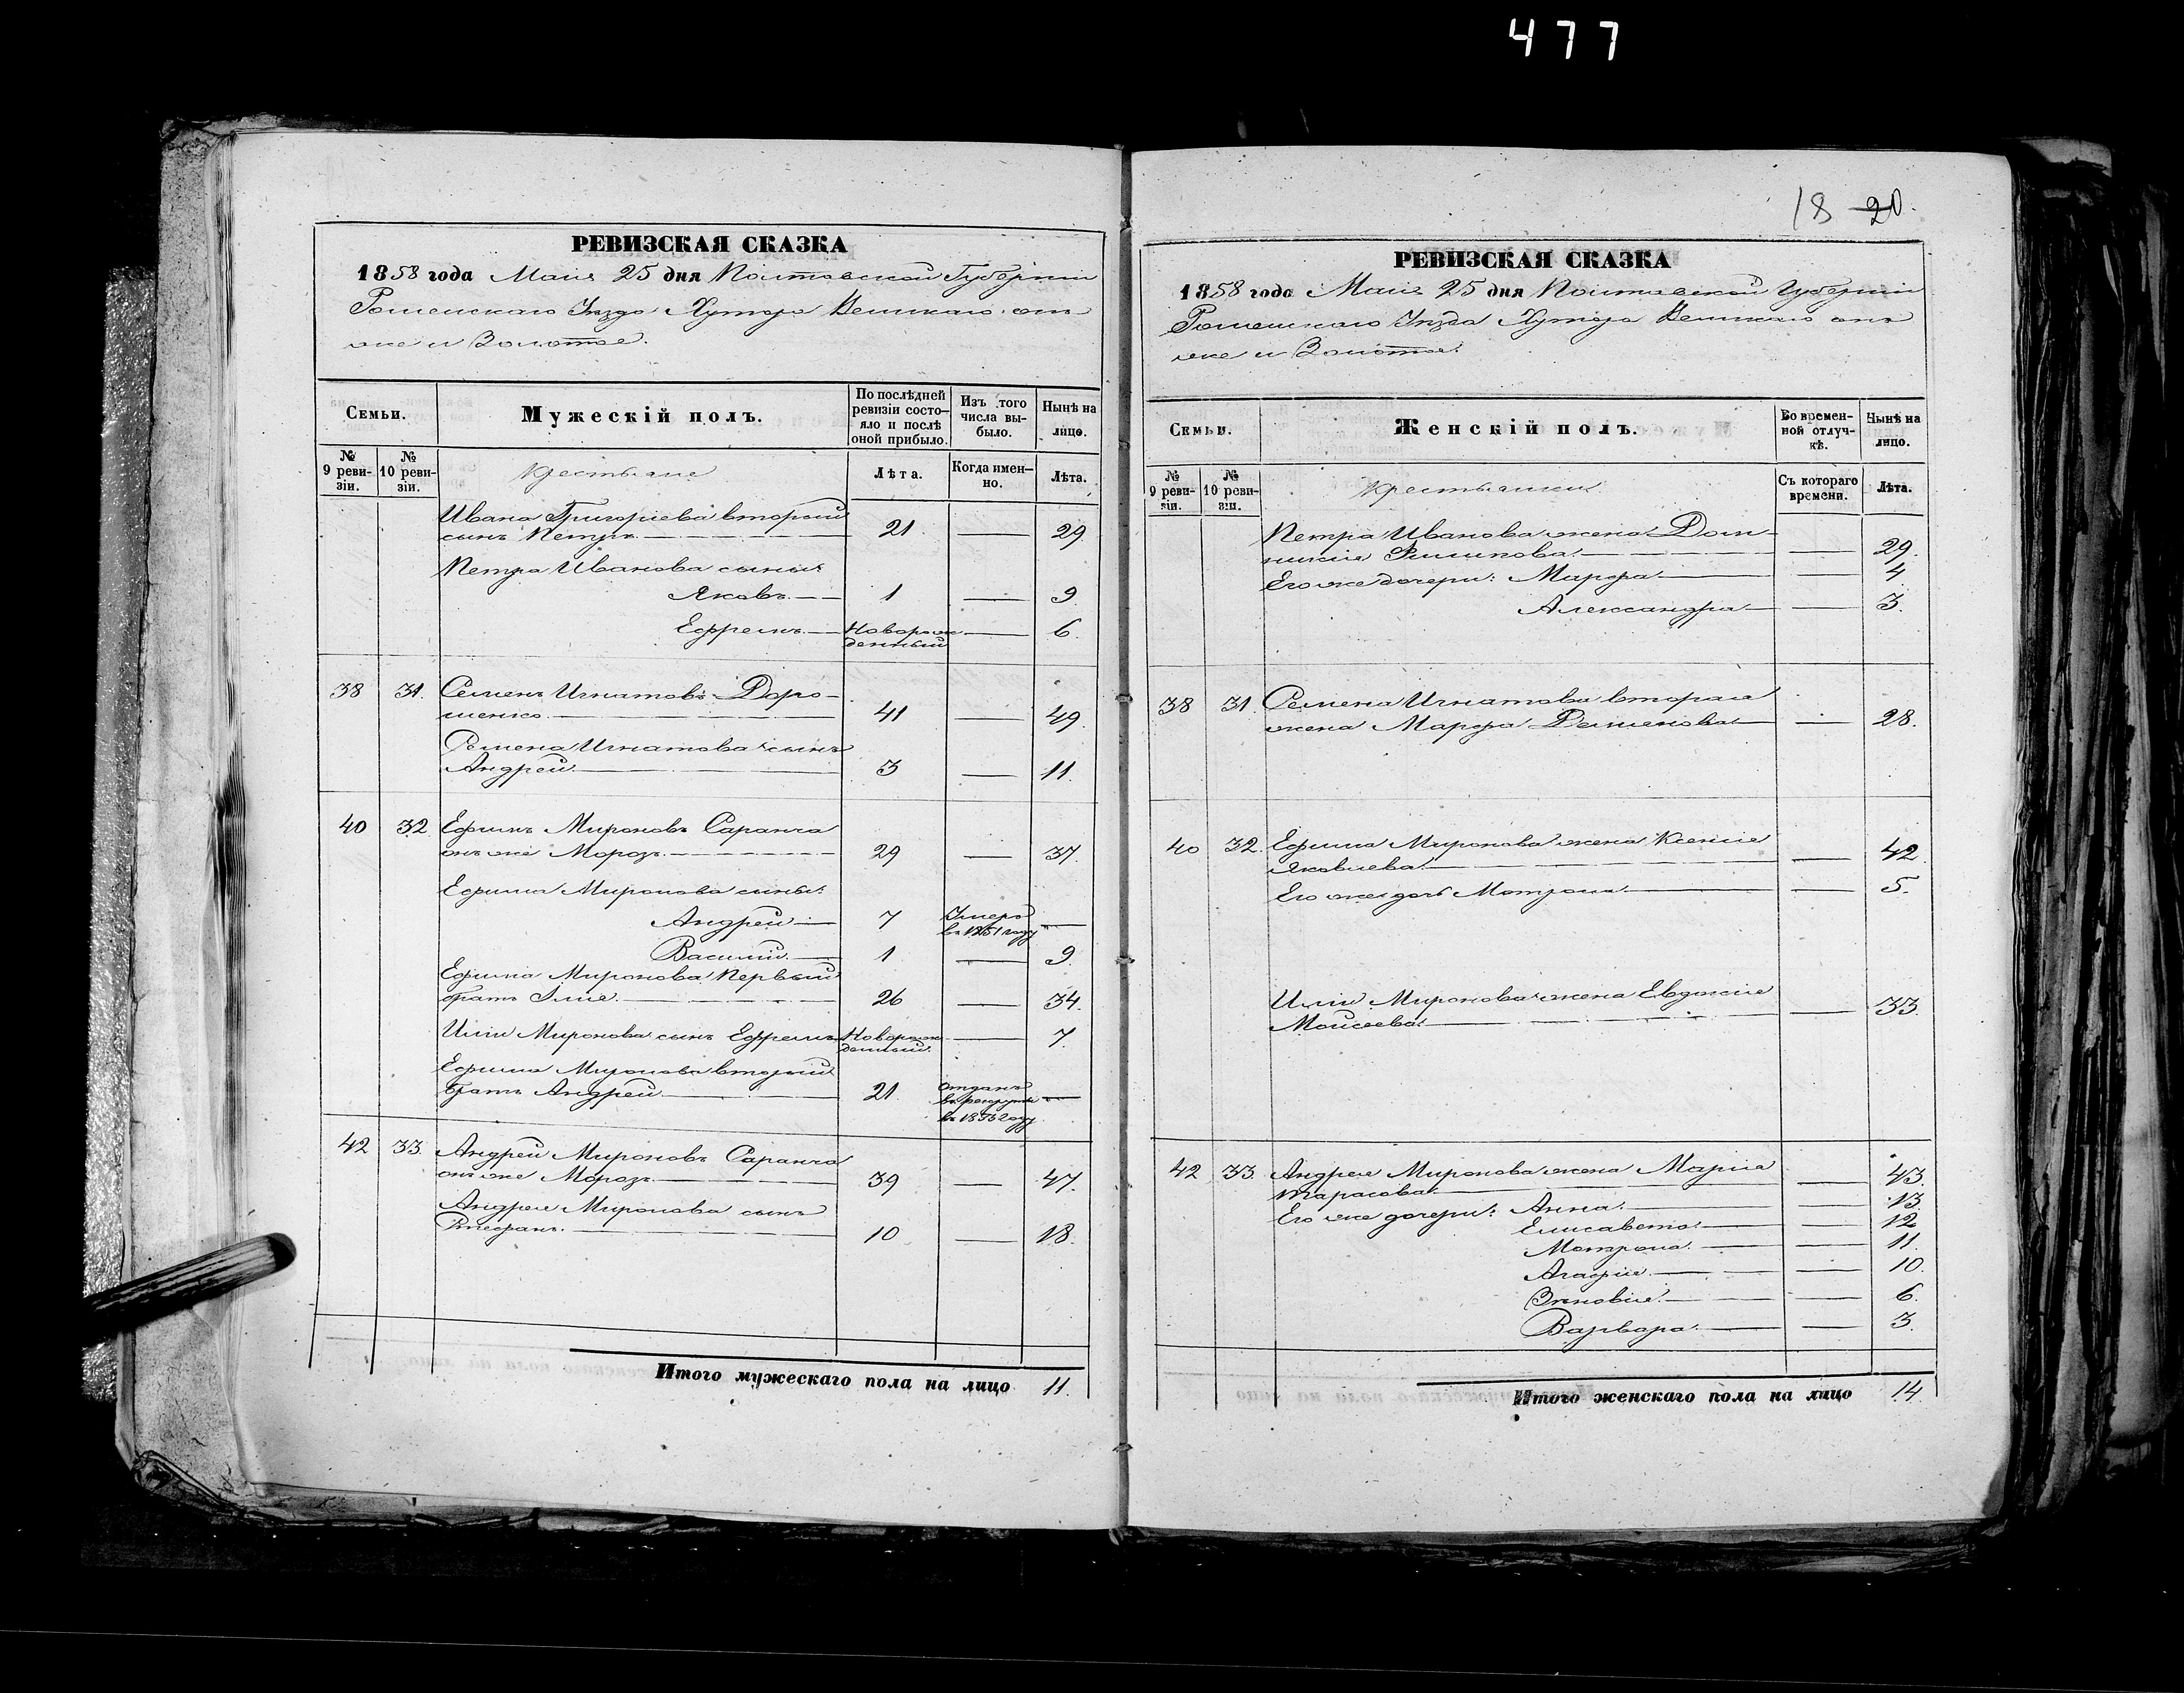 477
РЕВИЗСКАЯ СКАЗКА
1858 года Маія 25 дня Полтавской Губерніи
Роменскаго Уѣзда Хутора Великаго онъ
же и Золотое.
Семьи.
Мужескій полъ.
По послѣдней ревизіи состояло и послѣ оной прибыло.
Изъ того числа выбыло.
Нынѣ на лицо.
№ 9 ревизіи.
№ 10 ревизіи.
Крестьяне
Лѣта.
Когда именно.
Лѣта.
Ивана Григорьева вторый
сынъ Петръ 21 29
Петра Иванова сыны:
Яковъ 1 9
Ефремъ Новорожденный 6.
38 31. Семенъ Игнатовъ Доро-
шенко 41 49.
Семена Игнатова сынъ
Андрей 3 11.
40 32 Ефимъ Мироновъ Саранча
онъ же Морозъ 29 37.
Ефима Миронова сыны:
Андрей 7 Умеръ въ 1851 году
Василій 1 9
Ефима Миронова первый
братъ Илія 26 34.
Иліи Миронова сынъ Ефремъ Новорожденный. 7.
Ефима Миронова вторый
братъ Андрей 21. отданъ въ рекруты въ 1853 году
42 33. Андрей Мироновъ Саранча
онъ же Морозъ 39 47.
Андрея Миронова сынъ
Стефанъ. 10 18.
Итого мужескаго пола на лицо 11.
18 20.
РЕВИЗСКАЯ СКАЗКА
1858 года Маія 25 дня Полтавской Губерніи
Роменскаго Уѣзда Хутора Великаго онъ
же и Золотое.
Семьи.
Женскій полъ.
Во временной отлучкѣ.
Нынѣ на лицо.
№ 9 ревизіи.
№ 10 ревизіи.
Крестьянки
Съ котораго времени.
Лѣта.
Петра Иванова жена Дом-
никія Филипова 29.
Его же дочери: Марфа 4
Александра 3.
38 31. Семена Игнатова вторая
жена Марфа 28.
40 32. Ефима Миронова жена Ксенія
Яковлева 42.
Его же дочь Матрона 5.
Иліи Миронова жена Евдокія
Моисеева 33.
42 33. Андрея Миронова жена Марія
Тарасова 43.
Его же дочери: Анна 13.
Елисавета 12
Матрона. 11.
Агафія 10.
Зѣновія 6.
Варвара 3.
Итого женскаго пола на лицо 14.